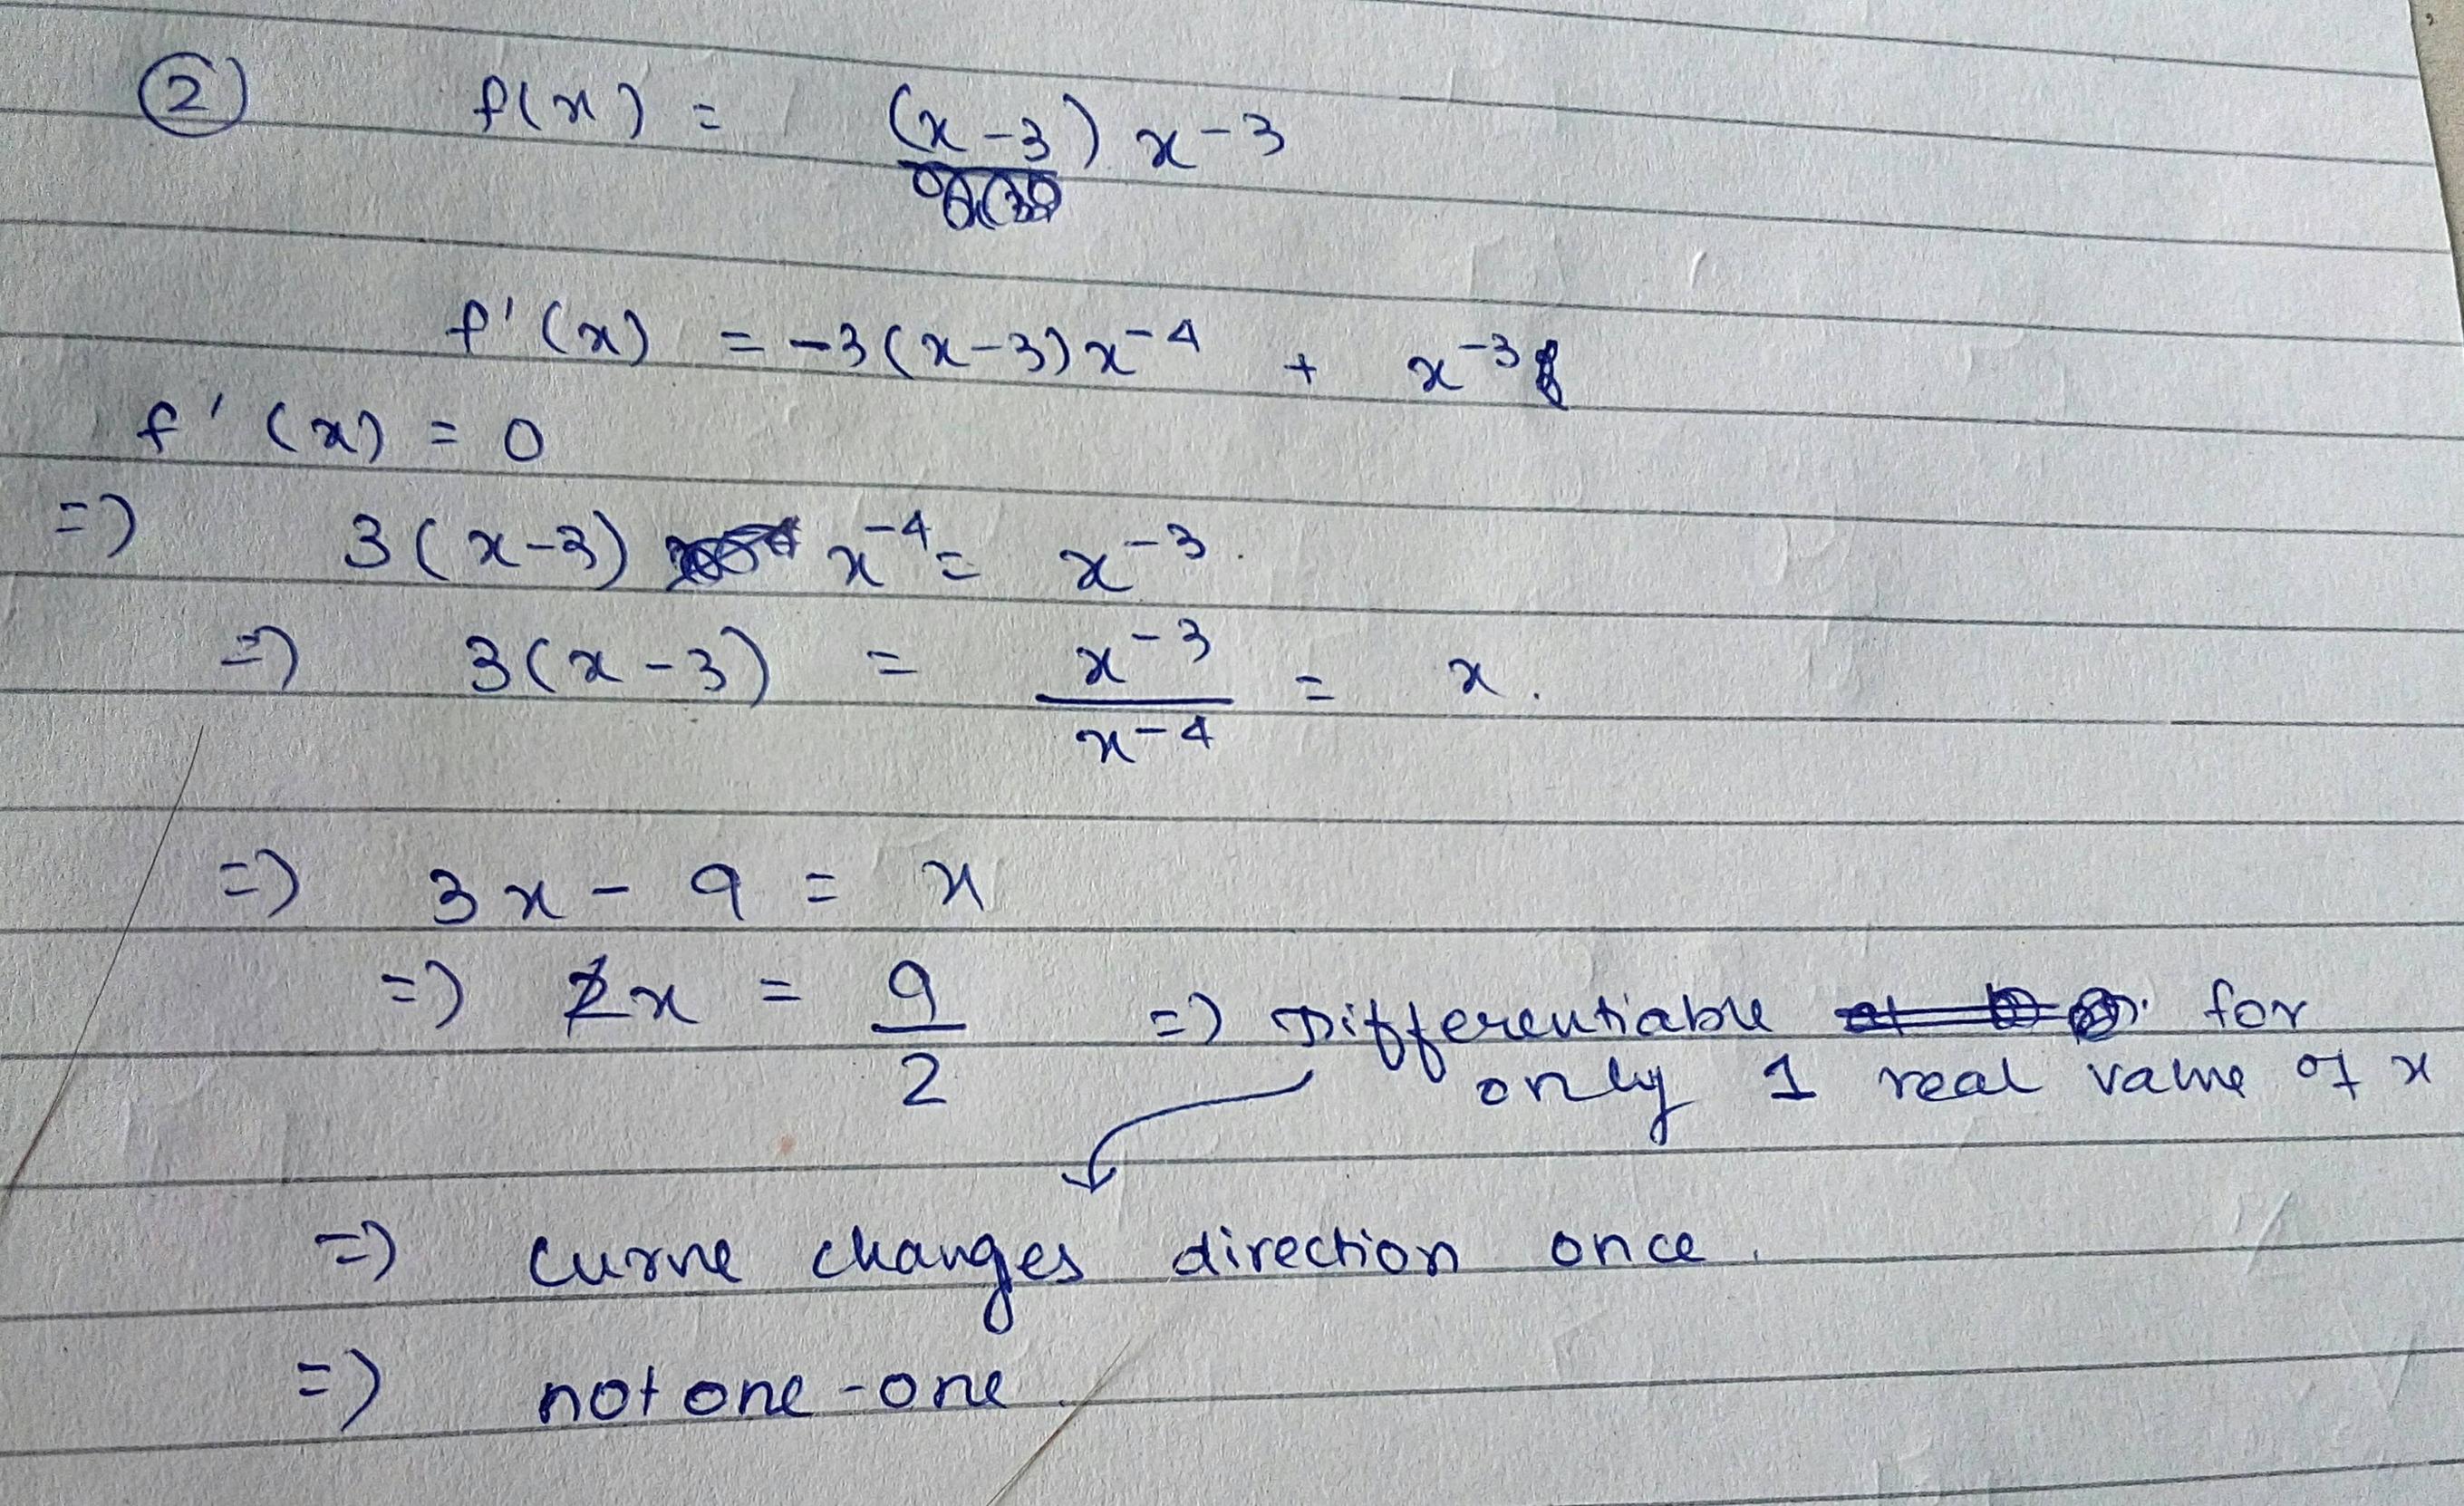 ② f(x) = (x-3) x^-3
f'(x) = -3(x-3)x^-4 + x^-3
f'(x) = 0
=) 3(x-3) x^-4 = x^-3.
=) 3(x-3) = x^-3/x^-4 = x.
=) 3x - 9 = x
=) x = 9/2 =) Differentiable for
only 1 real value of x
=) curve changes direction once.
=) not one-one.